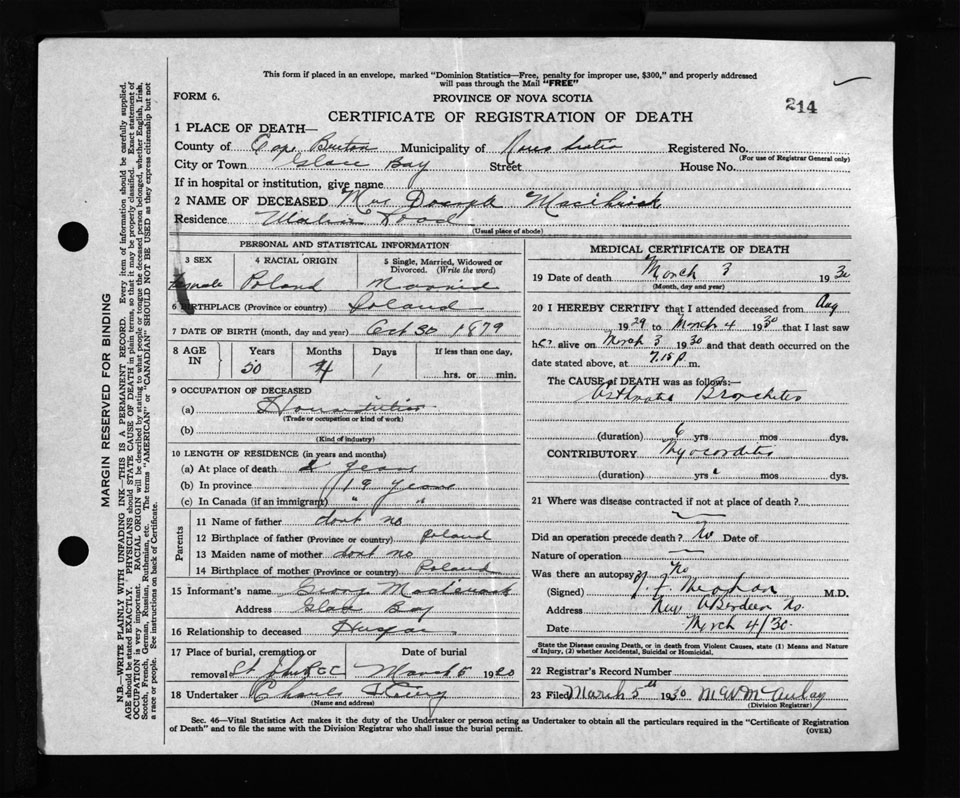 This form if placed in an envelope, marked "Dominion Statistics—Free, penalty for improper use, $300," and properly addressed
will pass through the Mail "FREE"
FORM 6.
PROVINCE OF NOVA SCOTIA
214
CERTIFICATE OF REGISTRATION OF DEATH
1 PLACE OF DEATH—
County of Cape Breton Municipality of Nova Scotia Registered No.
(For use of Registrar General only)
City or Town Glace Bay Street House No.
If in hospital or institution, give name
2 NAME OF DECEASED Mrs Joseph
Residence Road
(Usual place of abode)
PERSONAL AND STATISTICAL INFORMATION
3 SEX 4 RACIAL ORIGIN 5 Single, Married, Widowed or
Divorced. (Write the word)
Female Poland Married
6 BIRTHPLACE (Province or country) Poland
7 DATE OF BIRTH (month, day and year) Oct 30 1879
8 AGE IN Years Months Days If less than one day,
50 4 1 hrs. or min.
9 OCCUPATION OF DECEASED
(a)
(Trade or occupation or kind of work)
(b)
(Kind of industry)
10 LENGTH OF RESIDENCE (in years and months)
(a) At place of death years
(b) In province 19 years
(c) In Canada (if an immigrant) " "
Parents
11 Name of father dont no
12 Birthplace of father (Province or country) Poland
13 Maiden name of mother dont no
14 Birthplace of mother (Province or country) Poland
15 Informant's name George
Address Glace Bay
16 Relationship to deceased
17 Place of burial, cremation or removal Date of burial
St March 5 19
18 Undertaker Charles
(Name and address)
MEDICAL CERTIFICATE OF DEATH
19 Date of death March 3 1930
(Month, day and year)
20 I HEREBY CERTIFY that I attended deceased from Aug
1929 to March 4 1930 that I last saw
her alive on March 3 1930 and that death occurred on the
date stated above, at 7.15 P. m.
The CAUSE of DEATH was as follows:—
Asthmatic Bronchitis
(duration) 6 yrs. mos. dys.
CONTRIBUTORY Myocarditis
(duration) yrs. mos. dys.
21 Where was disease contracted if not at place of death?
Did an operation precede death? No Date of
Nature of operation —
Was there an autopsy? No
(Signed) M.D.
Address New Aberdeen
Date March 4/30
State the Disease causing Death, or in death from Violent Causes, state (1) Means and Nature
of Injury, (2) whether Accidental, Suicidal or Homicidal.
22 Registrar's Record Number
23 Filed March 5th 1930 M W McAulay
(Division Registrar)
Sec. 46—Vital Statistics Act makes it the duty of the Undertaker or person acting as Undertaker to obtain all the particulars required in the "Certificate of Registration
of Death" and to file the same with the Division Registrar who shall issue the burial permit.
(OVER)
MARGIN RESERVED FOR BINDING
N.B.—WRITE PLAINLY WITH UNFADING INK—THIS IS A PERMANENT RECORD. Every item of information should be carefully supplied.
AGE should be stated EXACTLY. PHYSICIANS should STATE CAUSE OF DEATH in plain terms, so that it may be properly classified. Exact statement of
OCCUPATION is very important. RACIAL ORIGIN will be described by stating to what people or tongue the deceased person belonged, whether English, Irish,
Scotch, French, German, Russian, Ruthenian, etc. The terms "AMERICAN" or "CANADIAN" SHOULD NOT BE USED as they express citizenship but not
a race or people. See instructions on back of Certificate.